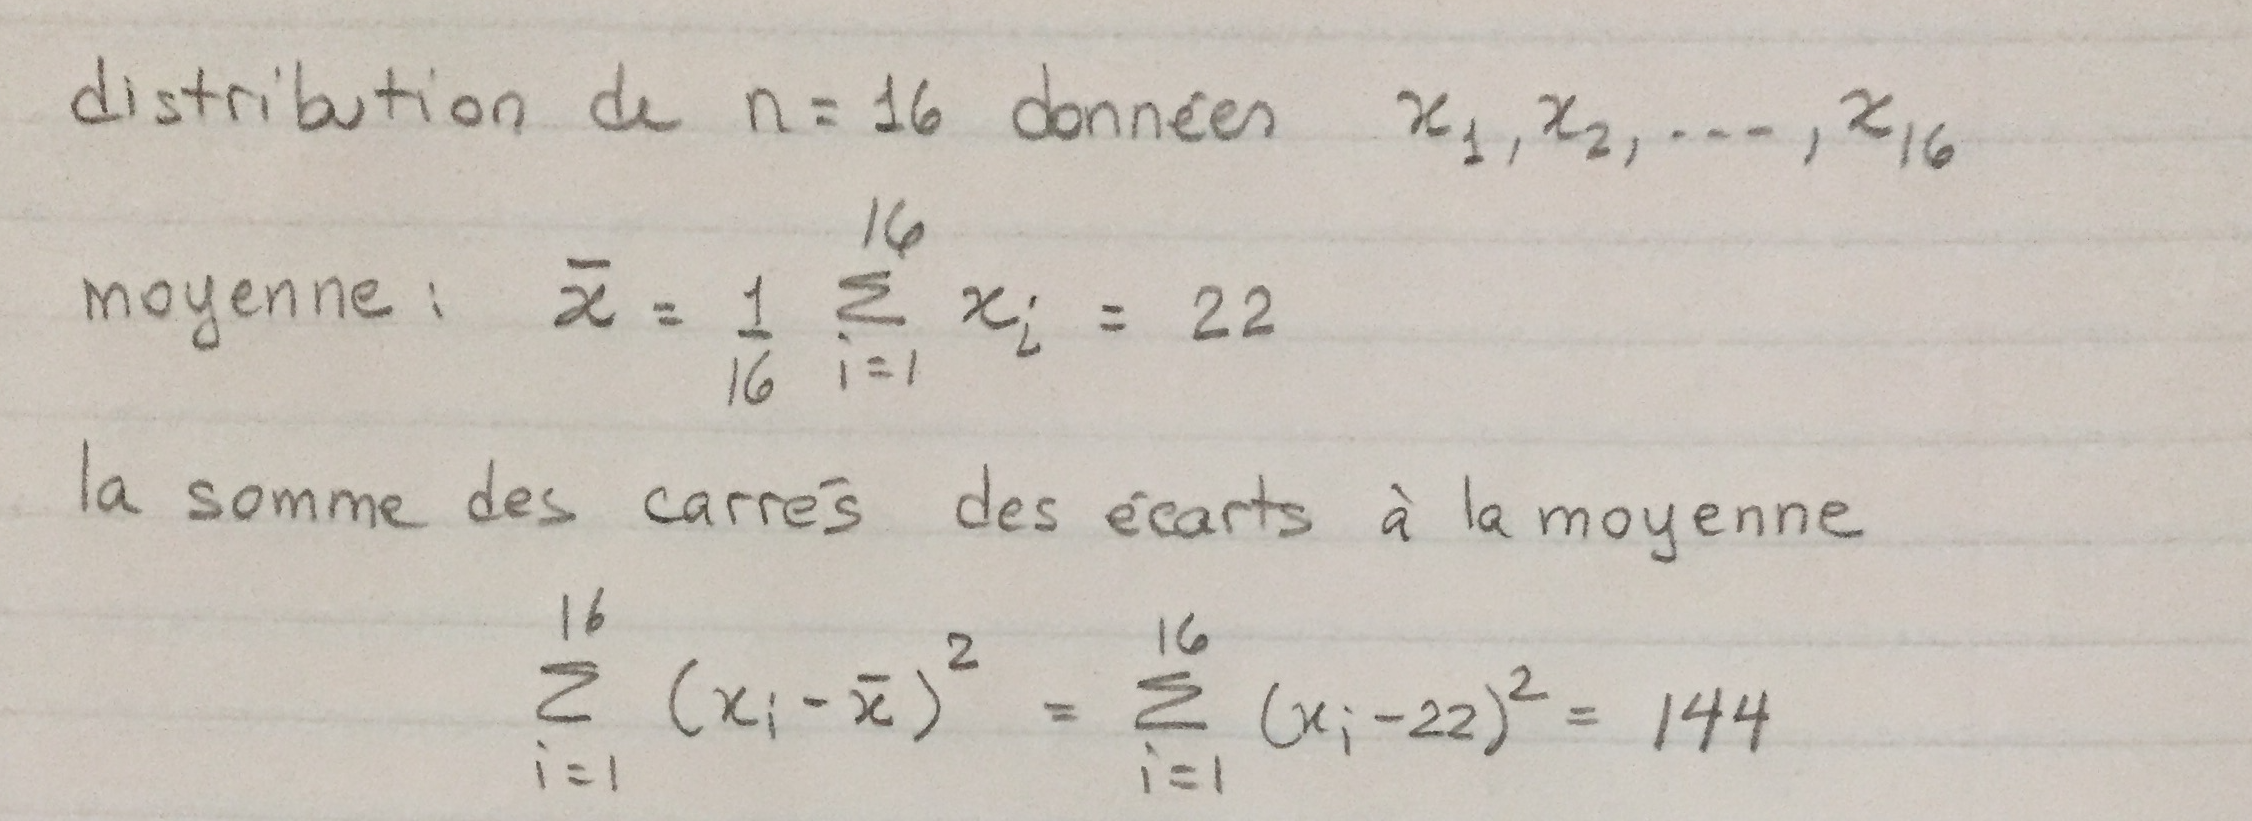 distribution de n = 16 données x₁, x₂, ----, x₁₆
moyenne : x̄ = 1/16 Σ_{i=1}^{16} x_i = 22
la somme des carrés des écarts à la moyenne
Σ_{i=1}^{16} (x_i - x̄)² = Σ_{i=1}^{16} (x_i - 22)² = 144